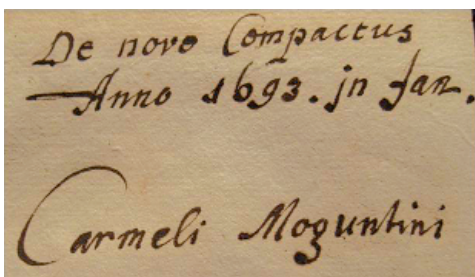 De novo Compactus
Anno 1693. jn Jan.
Carmeli Moguntini